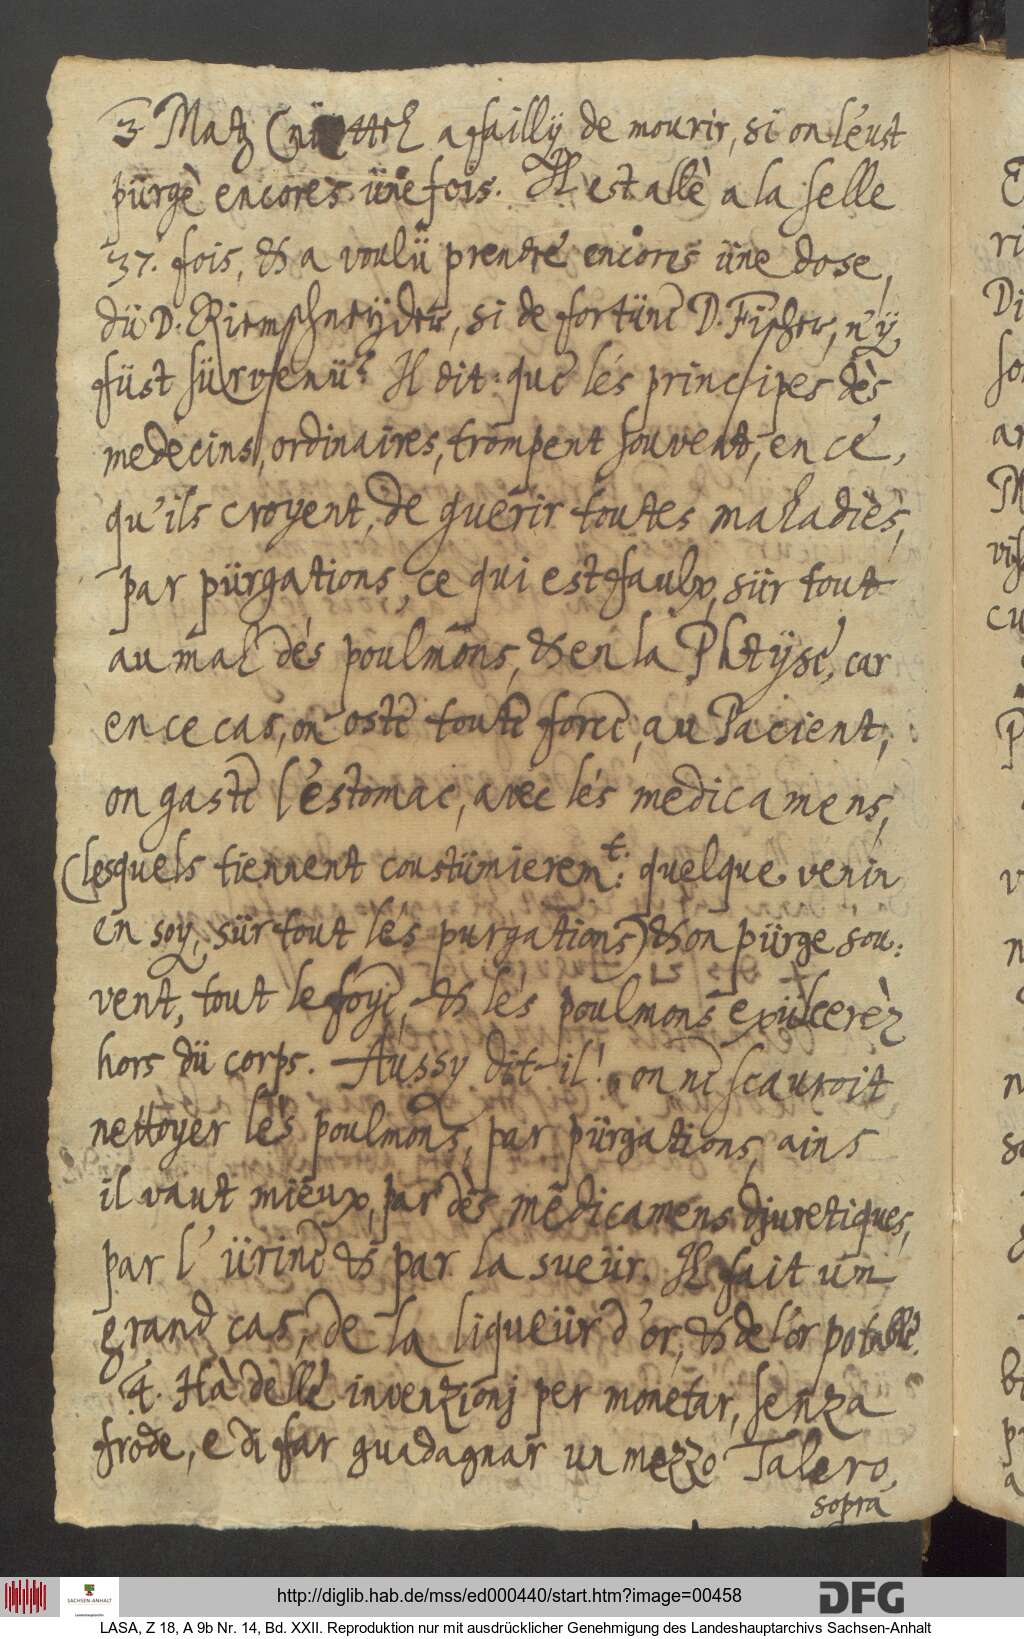 3 Matz Cnüttel a failly de mourir, si on l'eust
pürgè encores üne fois. Il est allè a la selle
37. fois, & a voulü prendre encores üne dose,
dü D. Riemschneyder, si de fortüne D. Fischer, n'ÿ
füst sürvenü? Il dit: que lés principes dès
medecins, ordinaires, trompent souvent, en ce,
qu'ils croyent, de guérir toutes maladiès,
par pürgations, ce qui est faulx, sür tout
au mal dés poulmons, & en la Phtÿse, car
en ce cas, on oste toute force, au Pacient,
on gaste l'estomac, avec lés medicamens,
(lesquels tiennent coustümierem.t: quelque venin
en soy, sür tout lés purgations) & on pürge sou:
vent, tout le foye, & lés poulmons exülcerèz
hors dü corps. Aussy dit-il! on ne scauroit
nettoyer lés poulmons, par pürgations, ains
il vaut mieux, par dès medicamens djuretiques,
par l'ürine & par la sueür. Il fait un
grand cas, de la liqueür d'or, & de l'or potable.
4. Hà delle invenzionj per monetar, senza
frode, e di far guadagnar un mezzo Talero,
sopra
http://diglib.hab.de/mss/ed000440/start.htm?image=00458
SACHSEN-ANHALT
DFG
LASA, Z 18, A 9b Nr. 14, Bd. XXII. Reproduktion nur mit ausdrücklicher Genehmigung des Landeshauptarchivs Sachsen-Anhalt